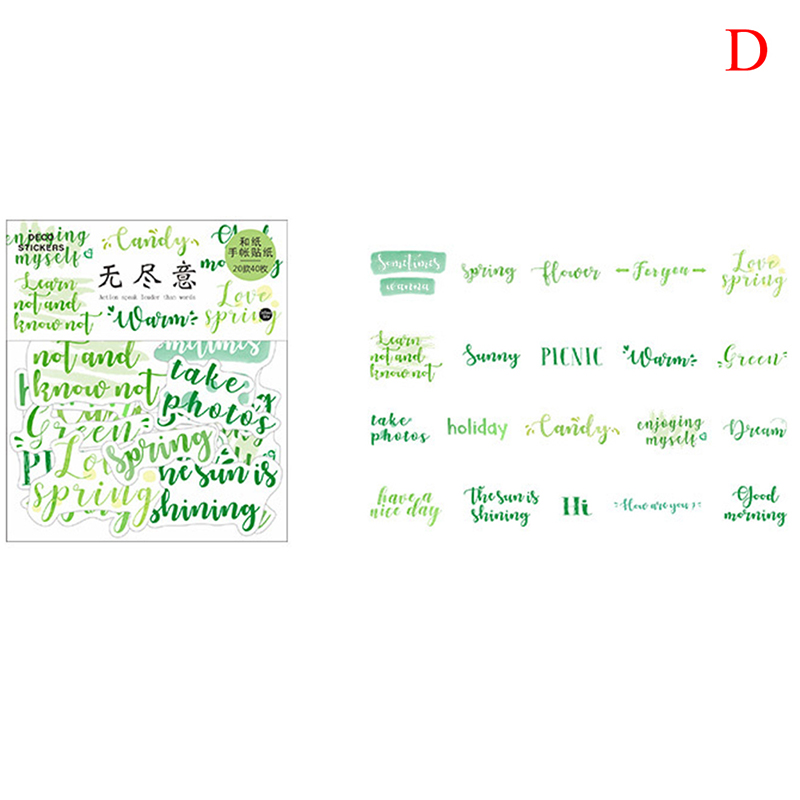 D
DECO
STICKERS
enjoying
myself
Candy
Good
和纸
手帐贴纸
20款40枚
无尽意
Action speak louder than words
Learn
not and
know not
Warm
Love
spring
not and
know not
take
photos
Green
spring
Love
spring
the sun is
shining
Sometimes
wanna
spring
flower
For you
Love
spring
Learn
not and
know not
Sunny
PICNIC
Warm
Green
take
photos
holiday
Candy
enjoying
myself
Dream
have a
nice day
The sun is
shining
Hi
How are you
Good
morning